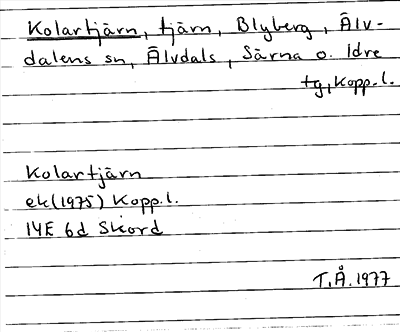 Kolartjärn, tjärn, Blyberg, Älv-
dalens sn, Älvdals, Särna o. Idre
tg, Kopp.l.
Kolartjärn
ek(1975) Kopp.l.
14E 6d Skord
T.Å.1977